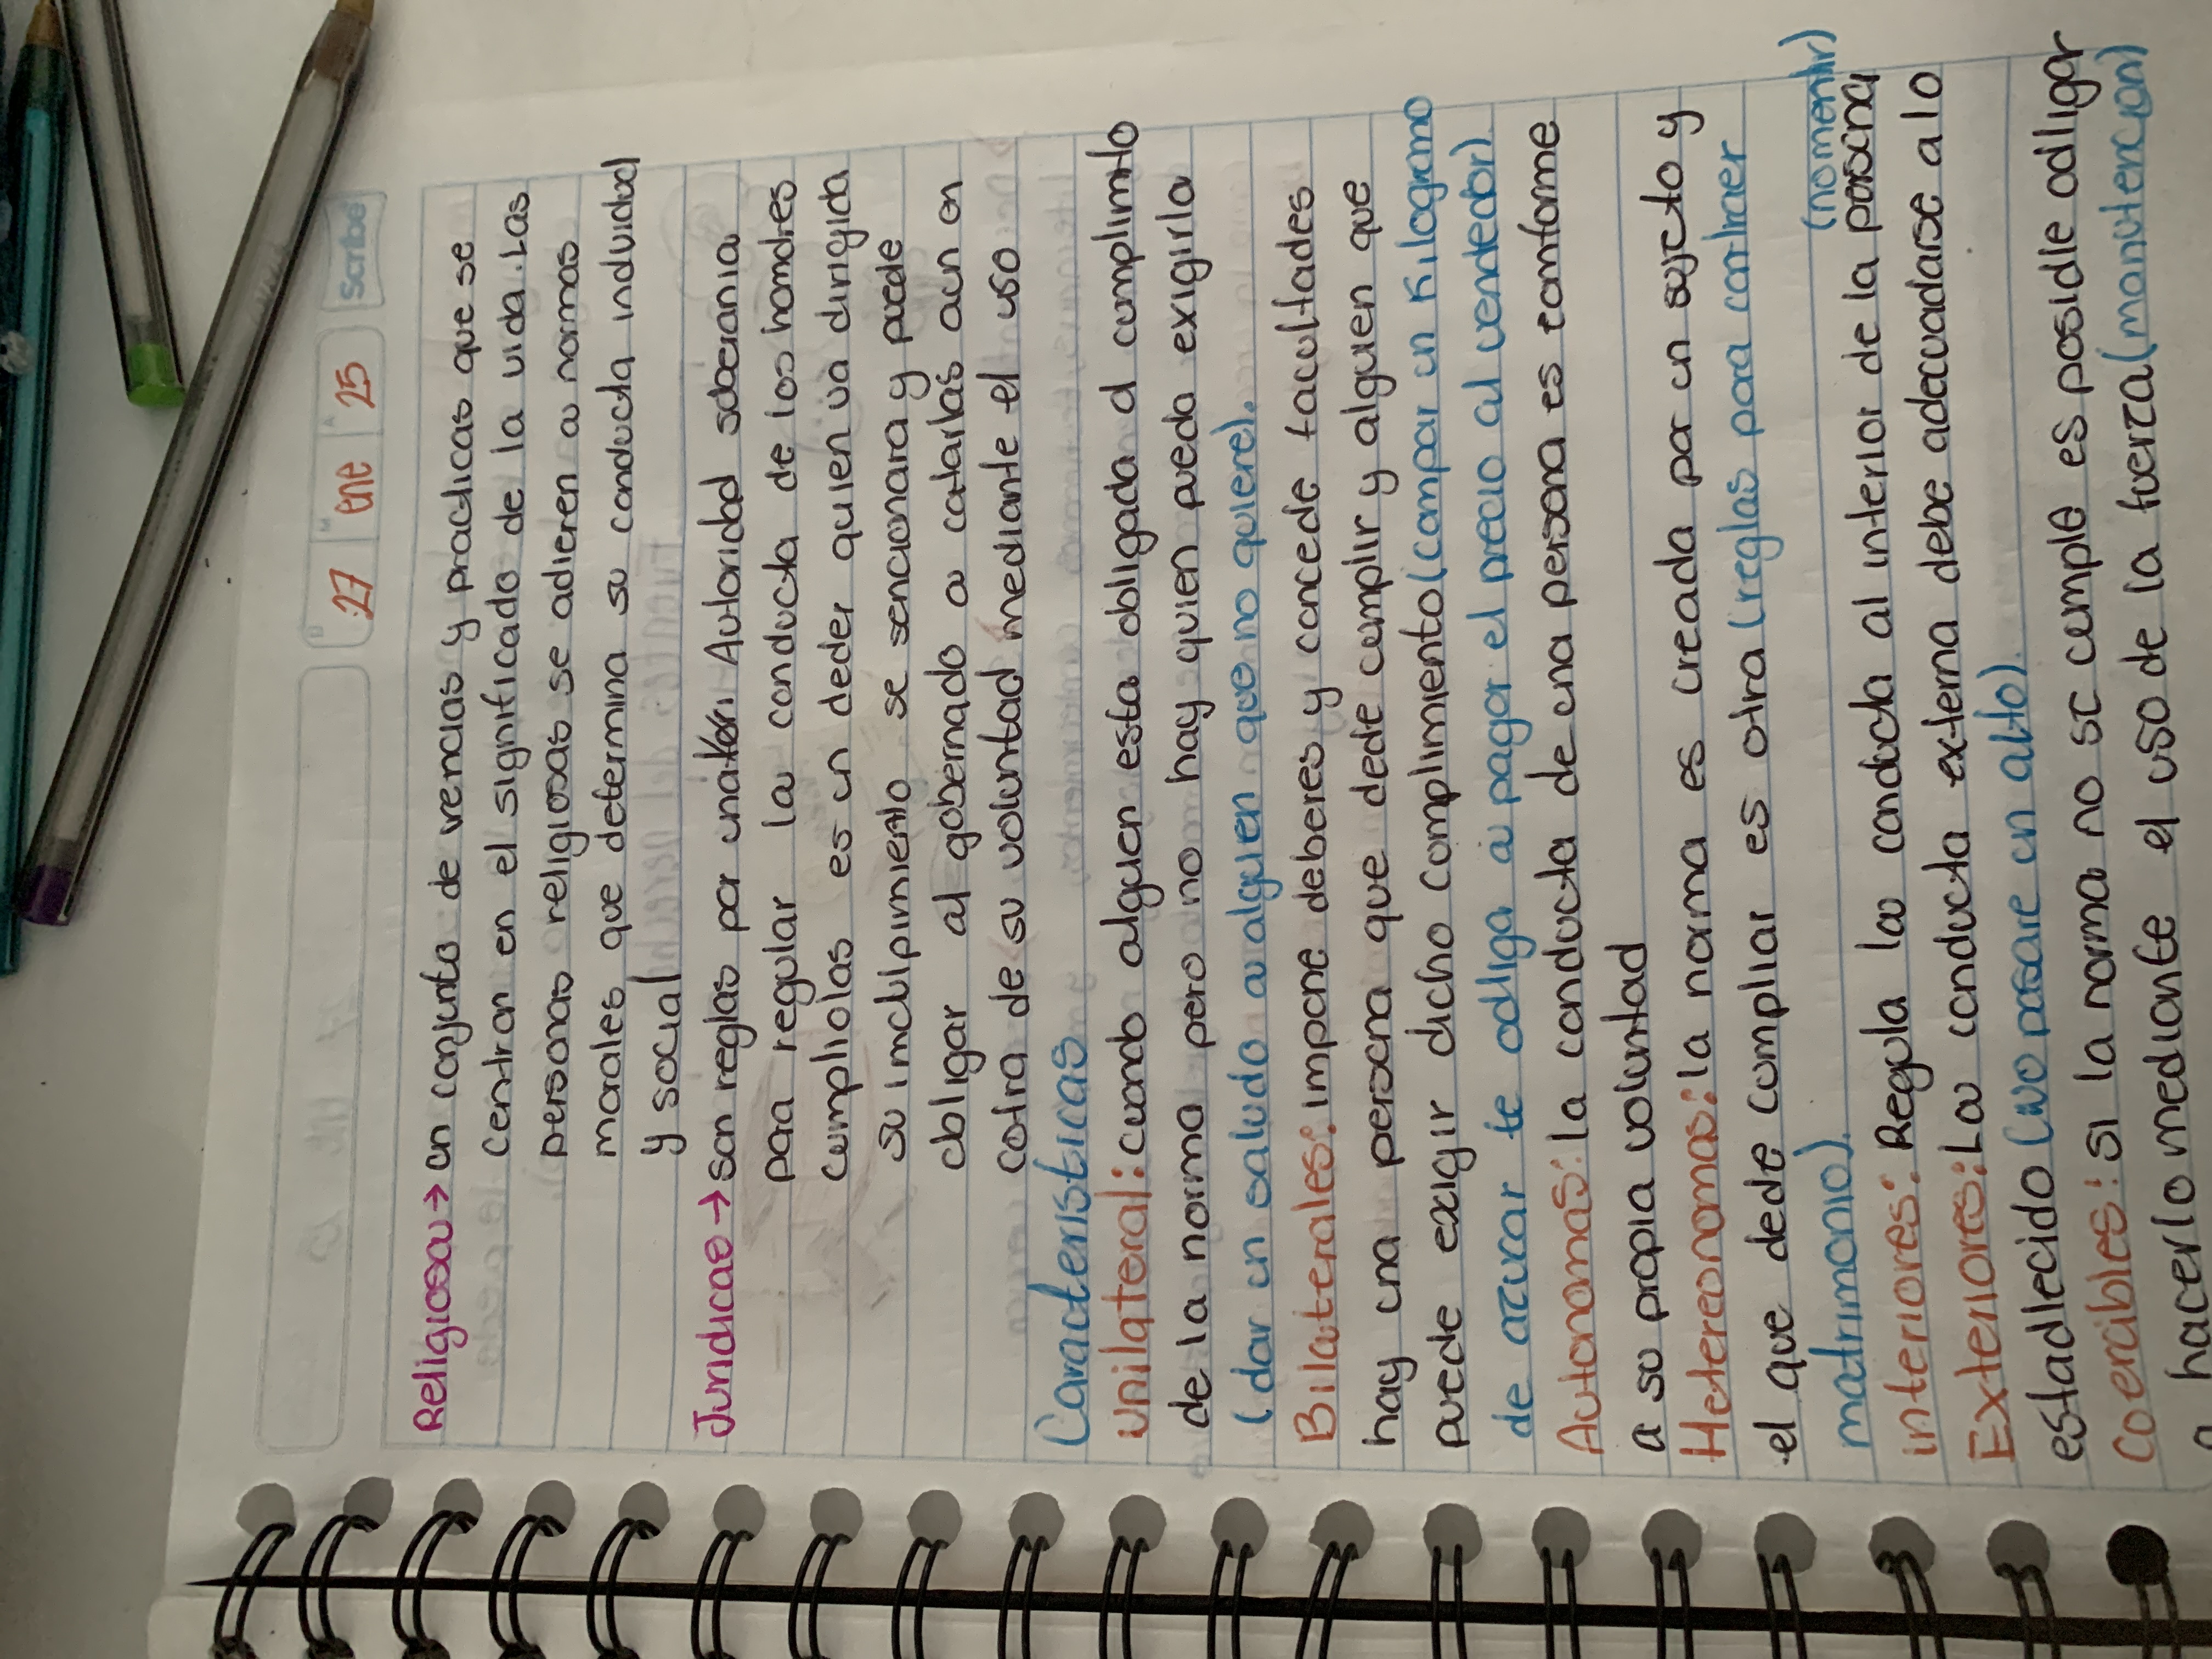 27 ene 25 Scribe
Religiosa→ un conjunto de vencias y practicas que se
centran en el significado de la vida. Las
personas religiosas se adieren a normas
morales que determina su conducta individual
y social
Juridicas→ son reglas por una Autoridad
para regular la conducta de los homdres
cumpliolas es un deder quien va dirigida
su incumplimiento se sencionara y puede
obligar al gobernado a catarlas aun en
cotra de su voluntad mediante el uso
Caracteristicas
Unilateral: cuando alguen esta obligada al cumplimto
de la norma pero no hay quien pueda exigirla
(dar un saludo a alguien que no quiere).
Bilaterales: impone deberes y concede facultades
hay una persona que dede cumplir y alguien que
puede exigir dicho complimiento (compar un kilogramo
de azucar te odliga a pagar el precio al vendedor).
Autonomas: la conducta de una persona es comforme
a su propia voluntad
Hetereonomas: la norma es creada por un sujeto y
el que dede compliar es otra (reglas para contraer
matrimonio). (no mentir)
interiores: Regula la conducta al interior de la persona
Exteriores: La conducta externa debe adecuadarse a lo
estadlecido (no pasare un alto).
Coercibles: si la norma no se cumple es posidle odligar
a hacerlo mediante el uso de la fuerza (manutencion)